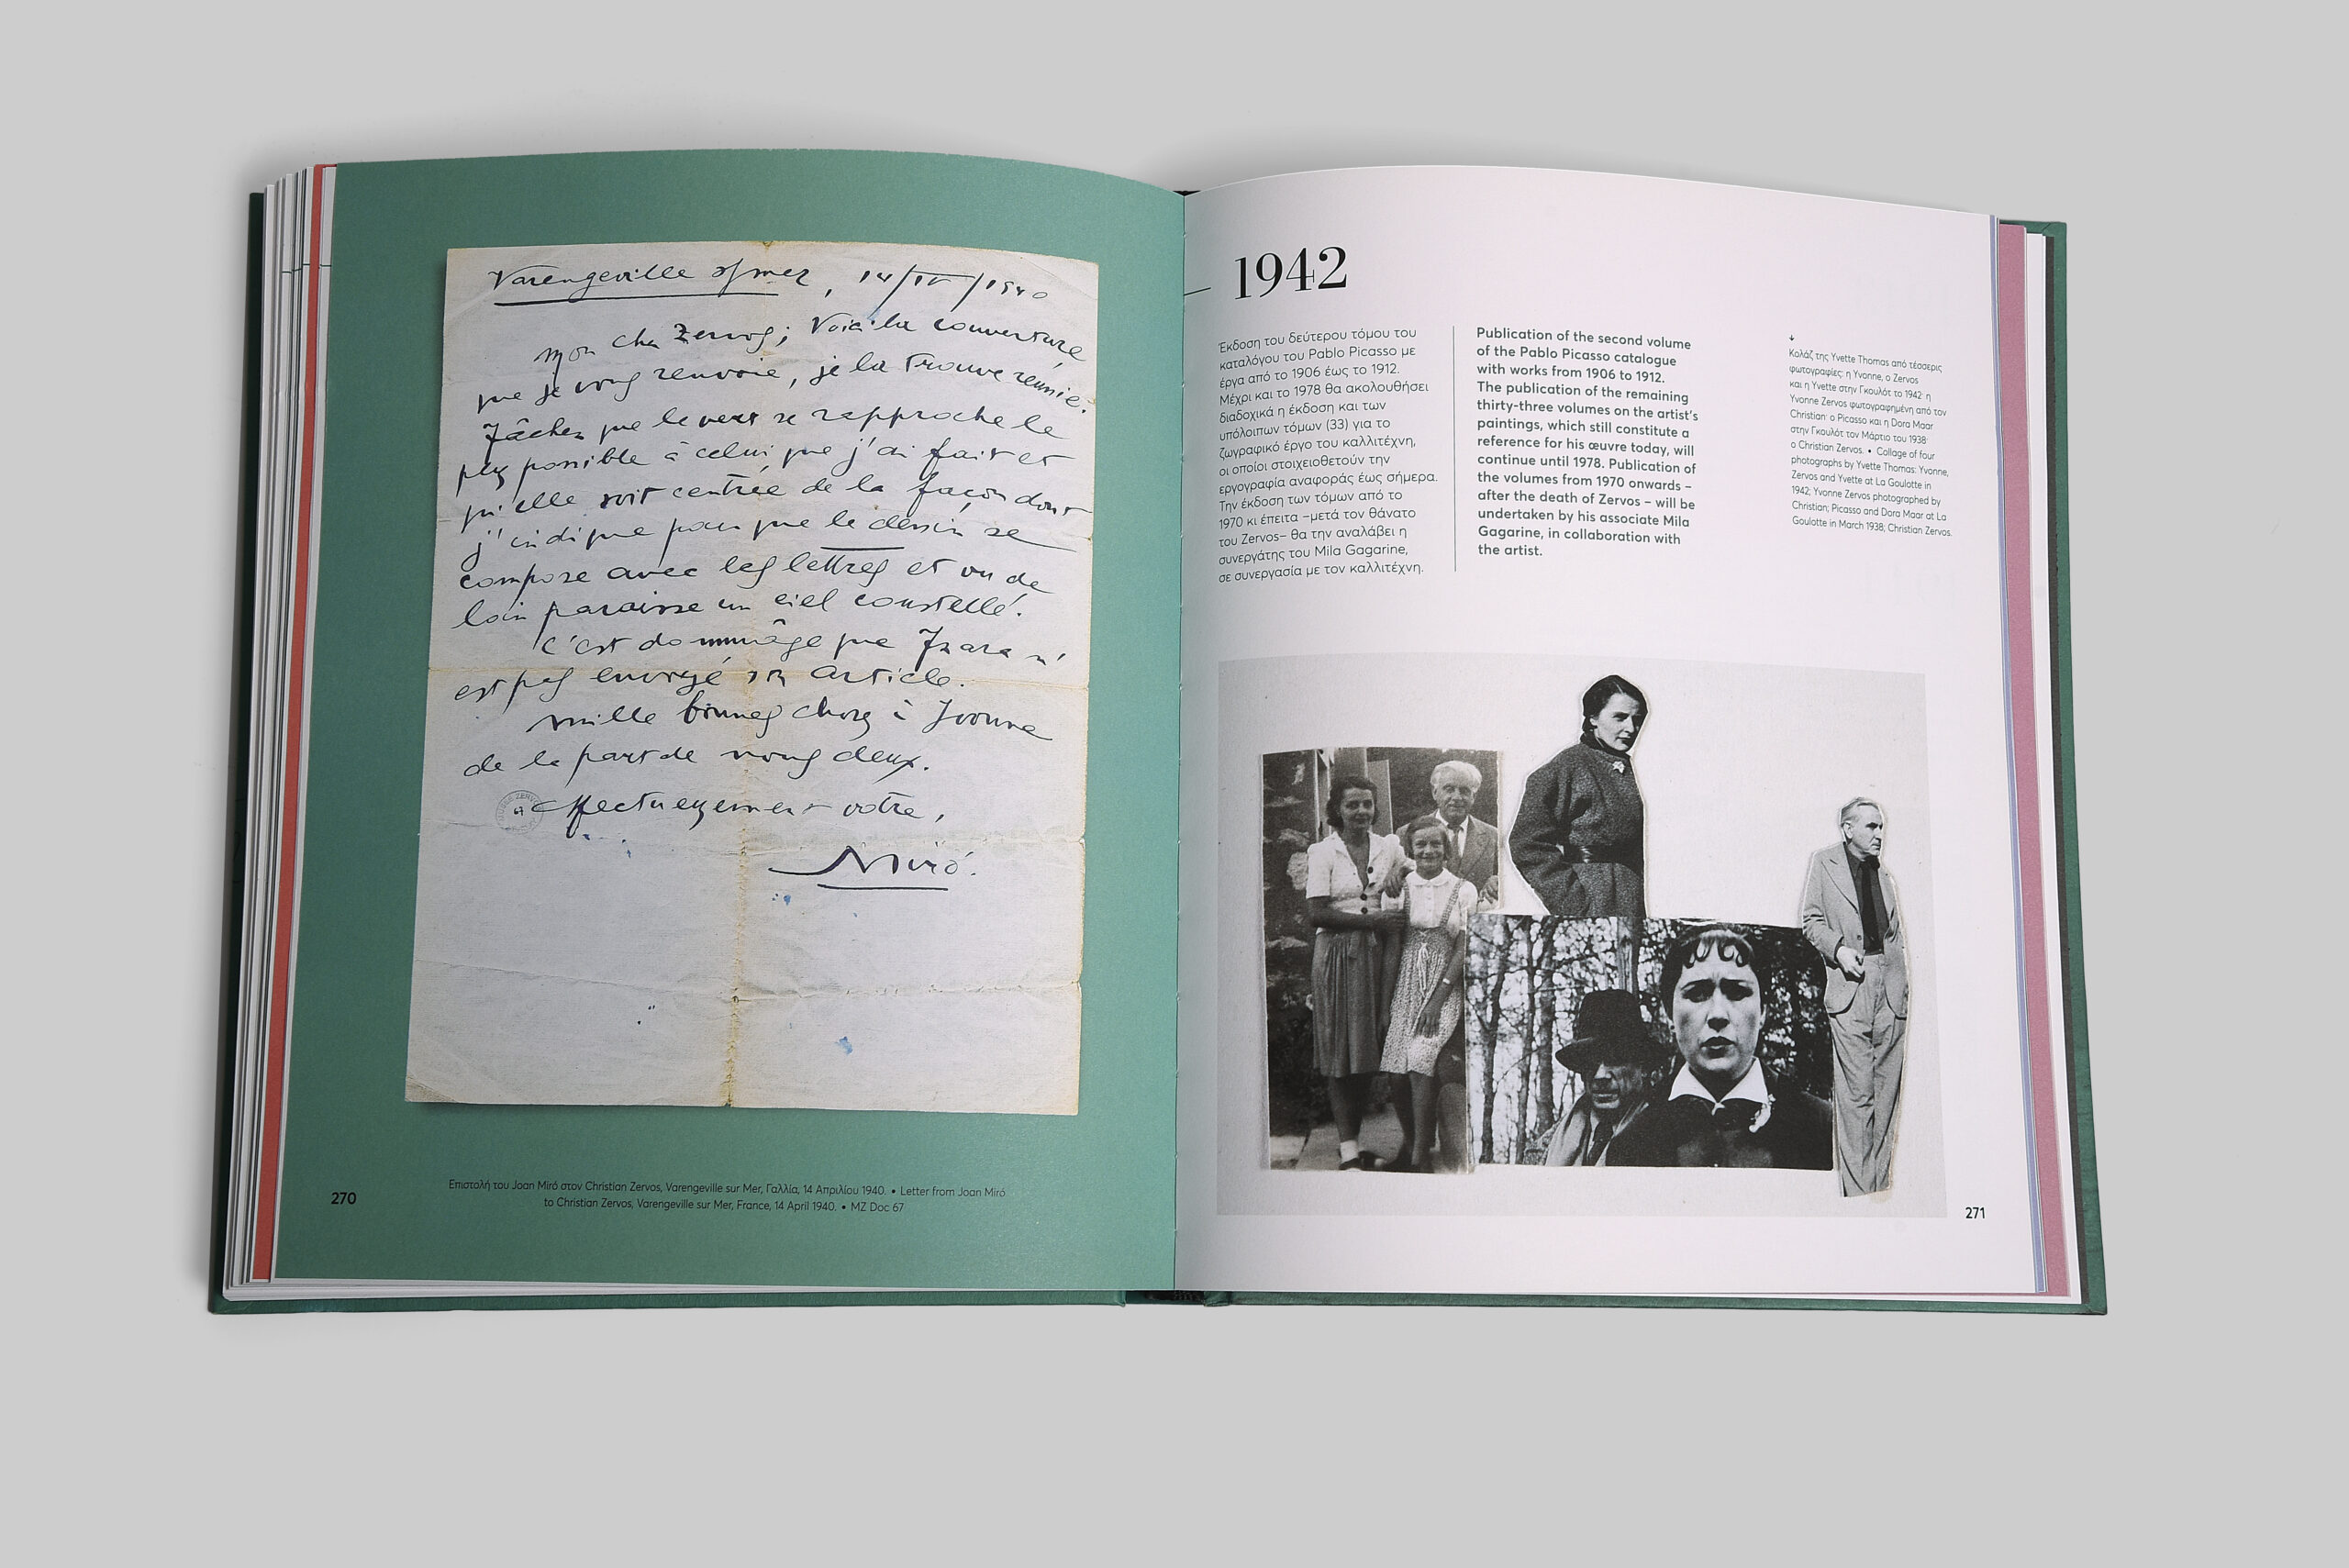 Varengeville s/mer, 14/IV/1940
Mon cher Zervos; Voici la couverture
que je vous renvoie, je la trouve réussie.
Tâchez que le vert se rapproche le
plus possible à celui que j'ai fait et
qu'elle soit centrée de la façon dont
j'indique pour que le dessin se
compose avec les lettres et vu de
loin paraisse un ciel constellé.
C'est dommâge que Tzara n'
est pas envoyé son article.
Mille bonnes choses à Yvonne
de la part de nous deux.
Affectueusement votre,
Miró.
270
Επιστολή του Joan Miró στον Christian Zervos, Varengeville sur Mer, Γαλλία, 14 Απριλίου 1940. • Letter from Joan Miró
to Christian Zervos, Varengeville sur Mer, France, 14 April 1940. • MZ Doc 67
1942
Έκδοση του δεύτερου τόμου του
καταλόγου του Pablo Picasso με
έργα από το 1906 έως το 1912.
Μέχρι και το 1978 θα ακολουθήσει
διαδοχικά η έκδοση και των
υπόλοιπων τόμων (33) για το
ζωγραφικό έργο του καλλιτέχνη,
οι οποίοι στοιχειοθετούν την
εργογραφία αναφοράς έως σήμερα.
Την έκδοση των τόμων από το
1970 κι έπειτα –μετά τον θάνατο
του Zervos– θα την αναλάβει η
συνεργάτης του Mila Gagarine,
σε συνεργασία με τον καλλιτέχνη.
Publication of the second volume
of the Pablo Picasso catalogue
with works from 1906 to 1912.
The publication of the remaining
thirty-three volumes on the artist's
paintings, which still constitute a
reference for his œuvre today, will
continue until 1978. Publication of
the volumes from 1970 onwards –
after the death of Zervos – will be
undertaken by his associate Mila
Gagarine, in collaboration with
the artist.
↓
Κολάζ της Yvette Thomas από τέσσερις
φωτογραφίες: η Yvonne, ο Zervos
και η Yvette στην Γκουλότ το 1942· η
Yvonne Zervos φωτογραφημένη από τον
Christian· ο Picasso και η Dora Maar
στην Γκουλότ τον Μάρτιο του 1938·
ο Christian Zervos. • Collage of four
photographs by Yvette Thomas: Yvonne,
Zervos and Yvette at La Goulotte in
1942; Yvonne Zervos photographed by
Christian; Picasso and Dora Maar at La
Goulotte in March 1938; Christian Zervos.
271